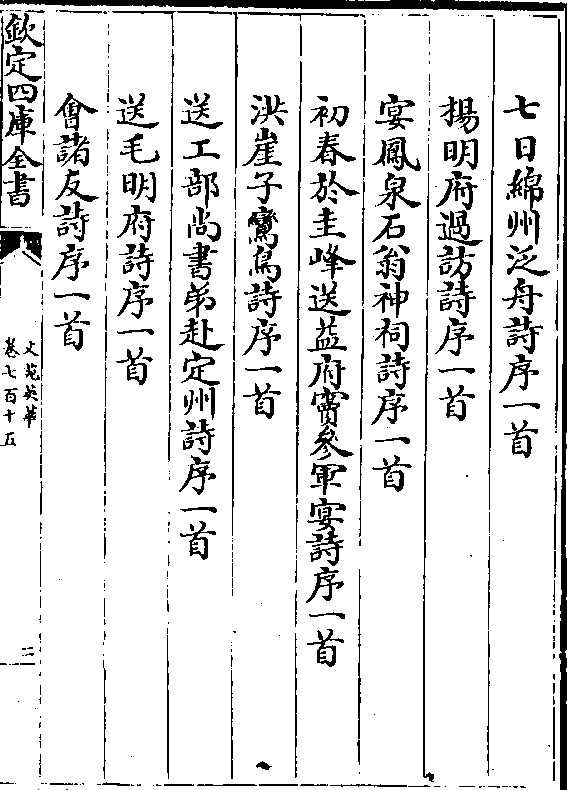 七日綿州泛舟詩序一首
揚明府過訪詩序一首
宴鳳泉石翁神祠詩序一首
初春於圭峰送益府竇參軍宴詩序一首
洪崖子鸞鳥詩序一首
送工部尚書弟赴定州詩序一首
送毛明府詩序一首
會諸友詩序一首
欽定四庫全書
文苑英華
卷七百十五
三